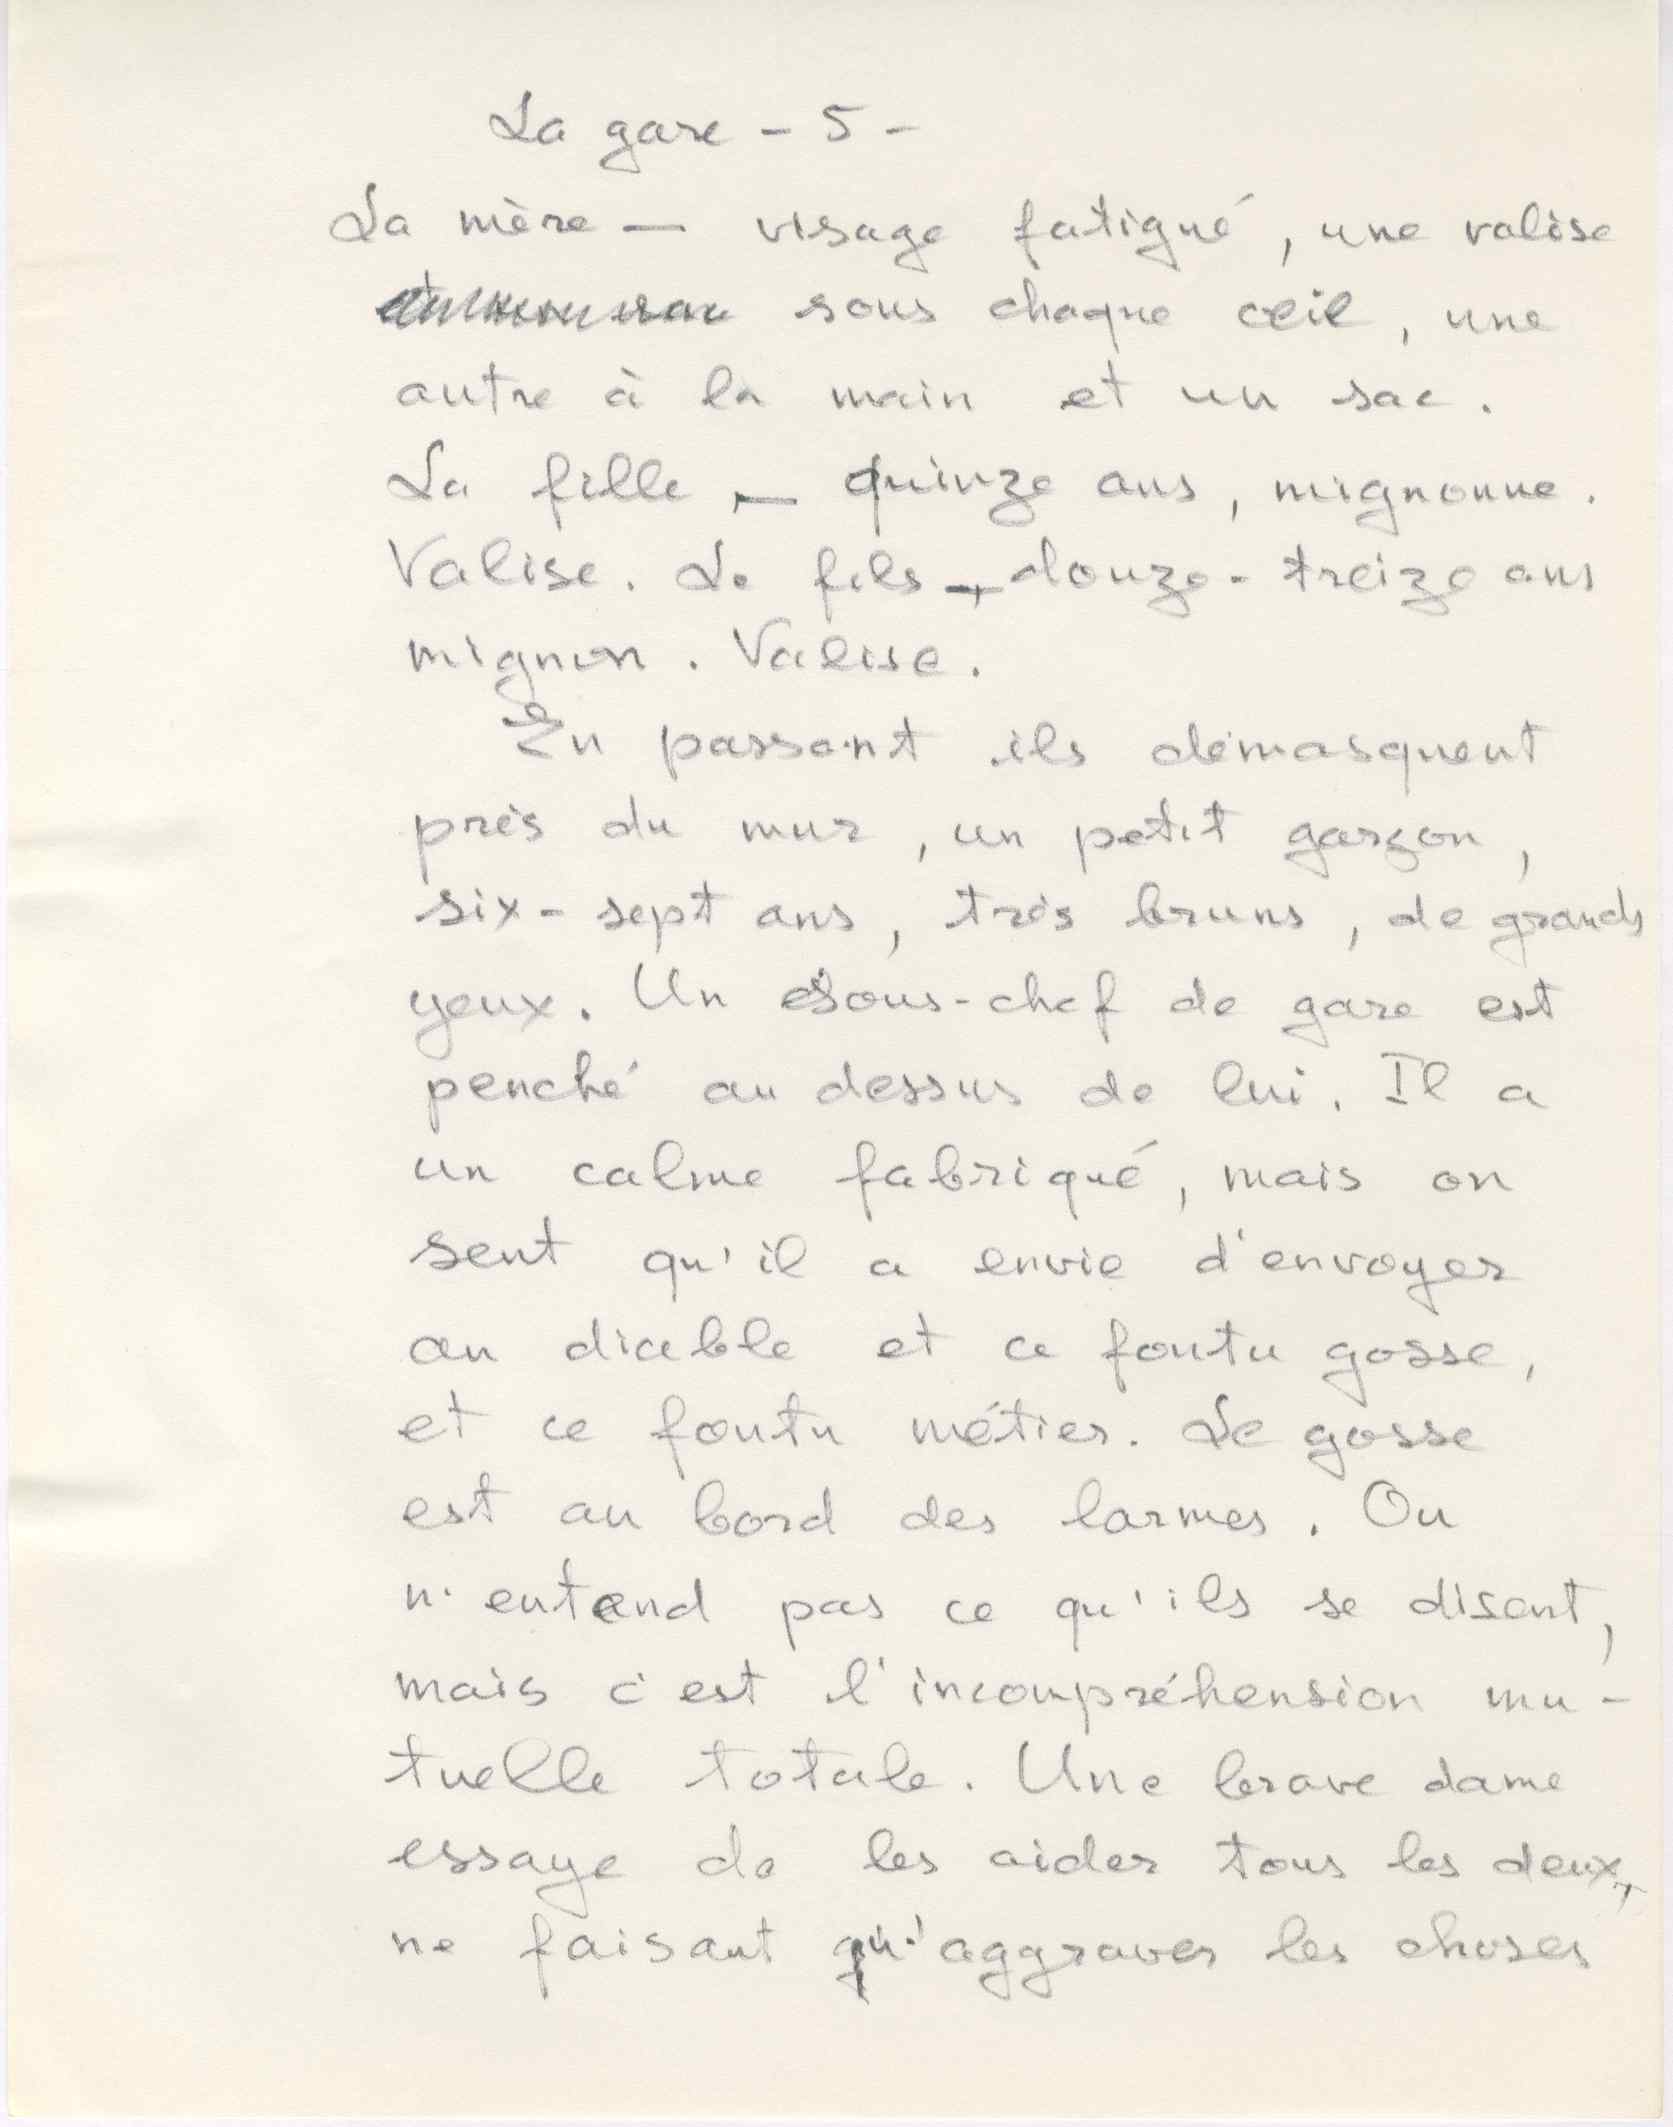 La gare - 5 -
La mère — visage fatigué, une valise
sous chaque œil, une
autre à la main et un sac.
La fille — quinze ans, mignonne.
Valise. Le fils — douze - treize ans
mignon. Valise.
En passant ils démasquent
près du mur, un petit garçon,
six - sept ans, très bruns, de grands
yeux. Un Sous-chef de gare est
penché au dessus de lui. Il a
un calme fabriqué, mais on
sent qu'il a envie d'envoyer
au diable et ce foutu gosse,
et ce foutu métier. Le gosse
est au bord des larmes. On
n'entend pas ce qu'ils se disent,
mais c'est l'incompréhension mu-
tuelle totale. Une brave dame
essaye de les aider tous les deux,
ne faisant qu'aggraver les choses